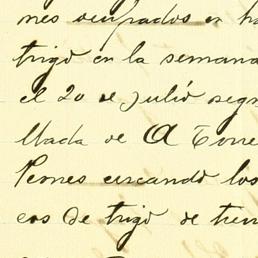 nes ocupados en ha
trigo en la semana
el 20 de Julio segn
llada de A Torre
Peones cercando los
cos de trigo de trein